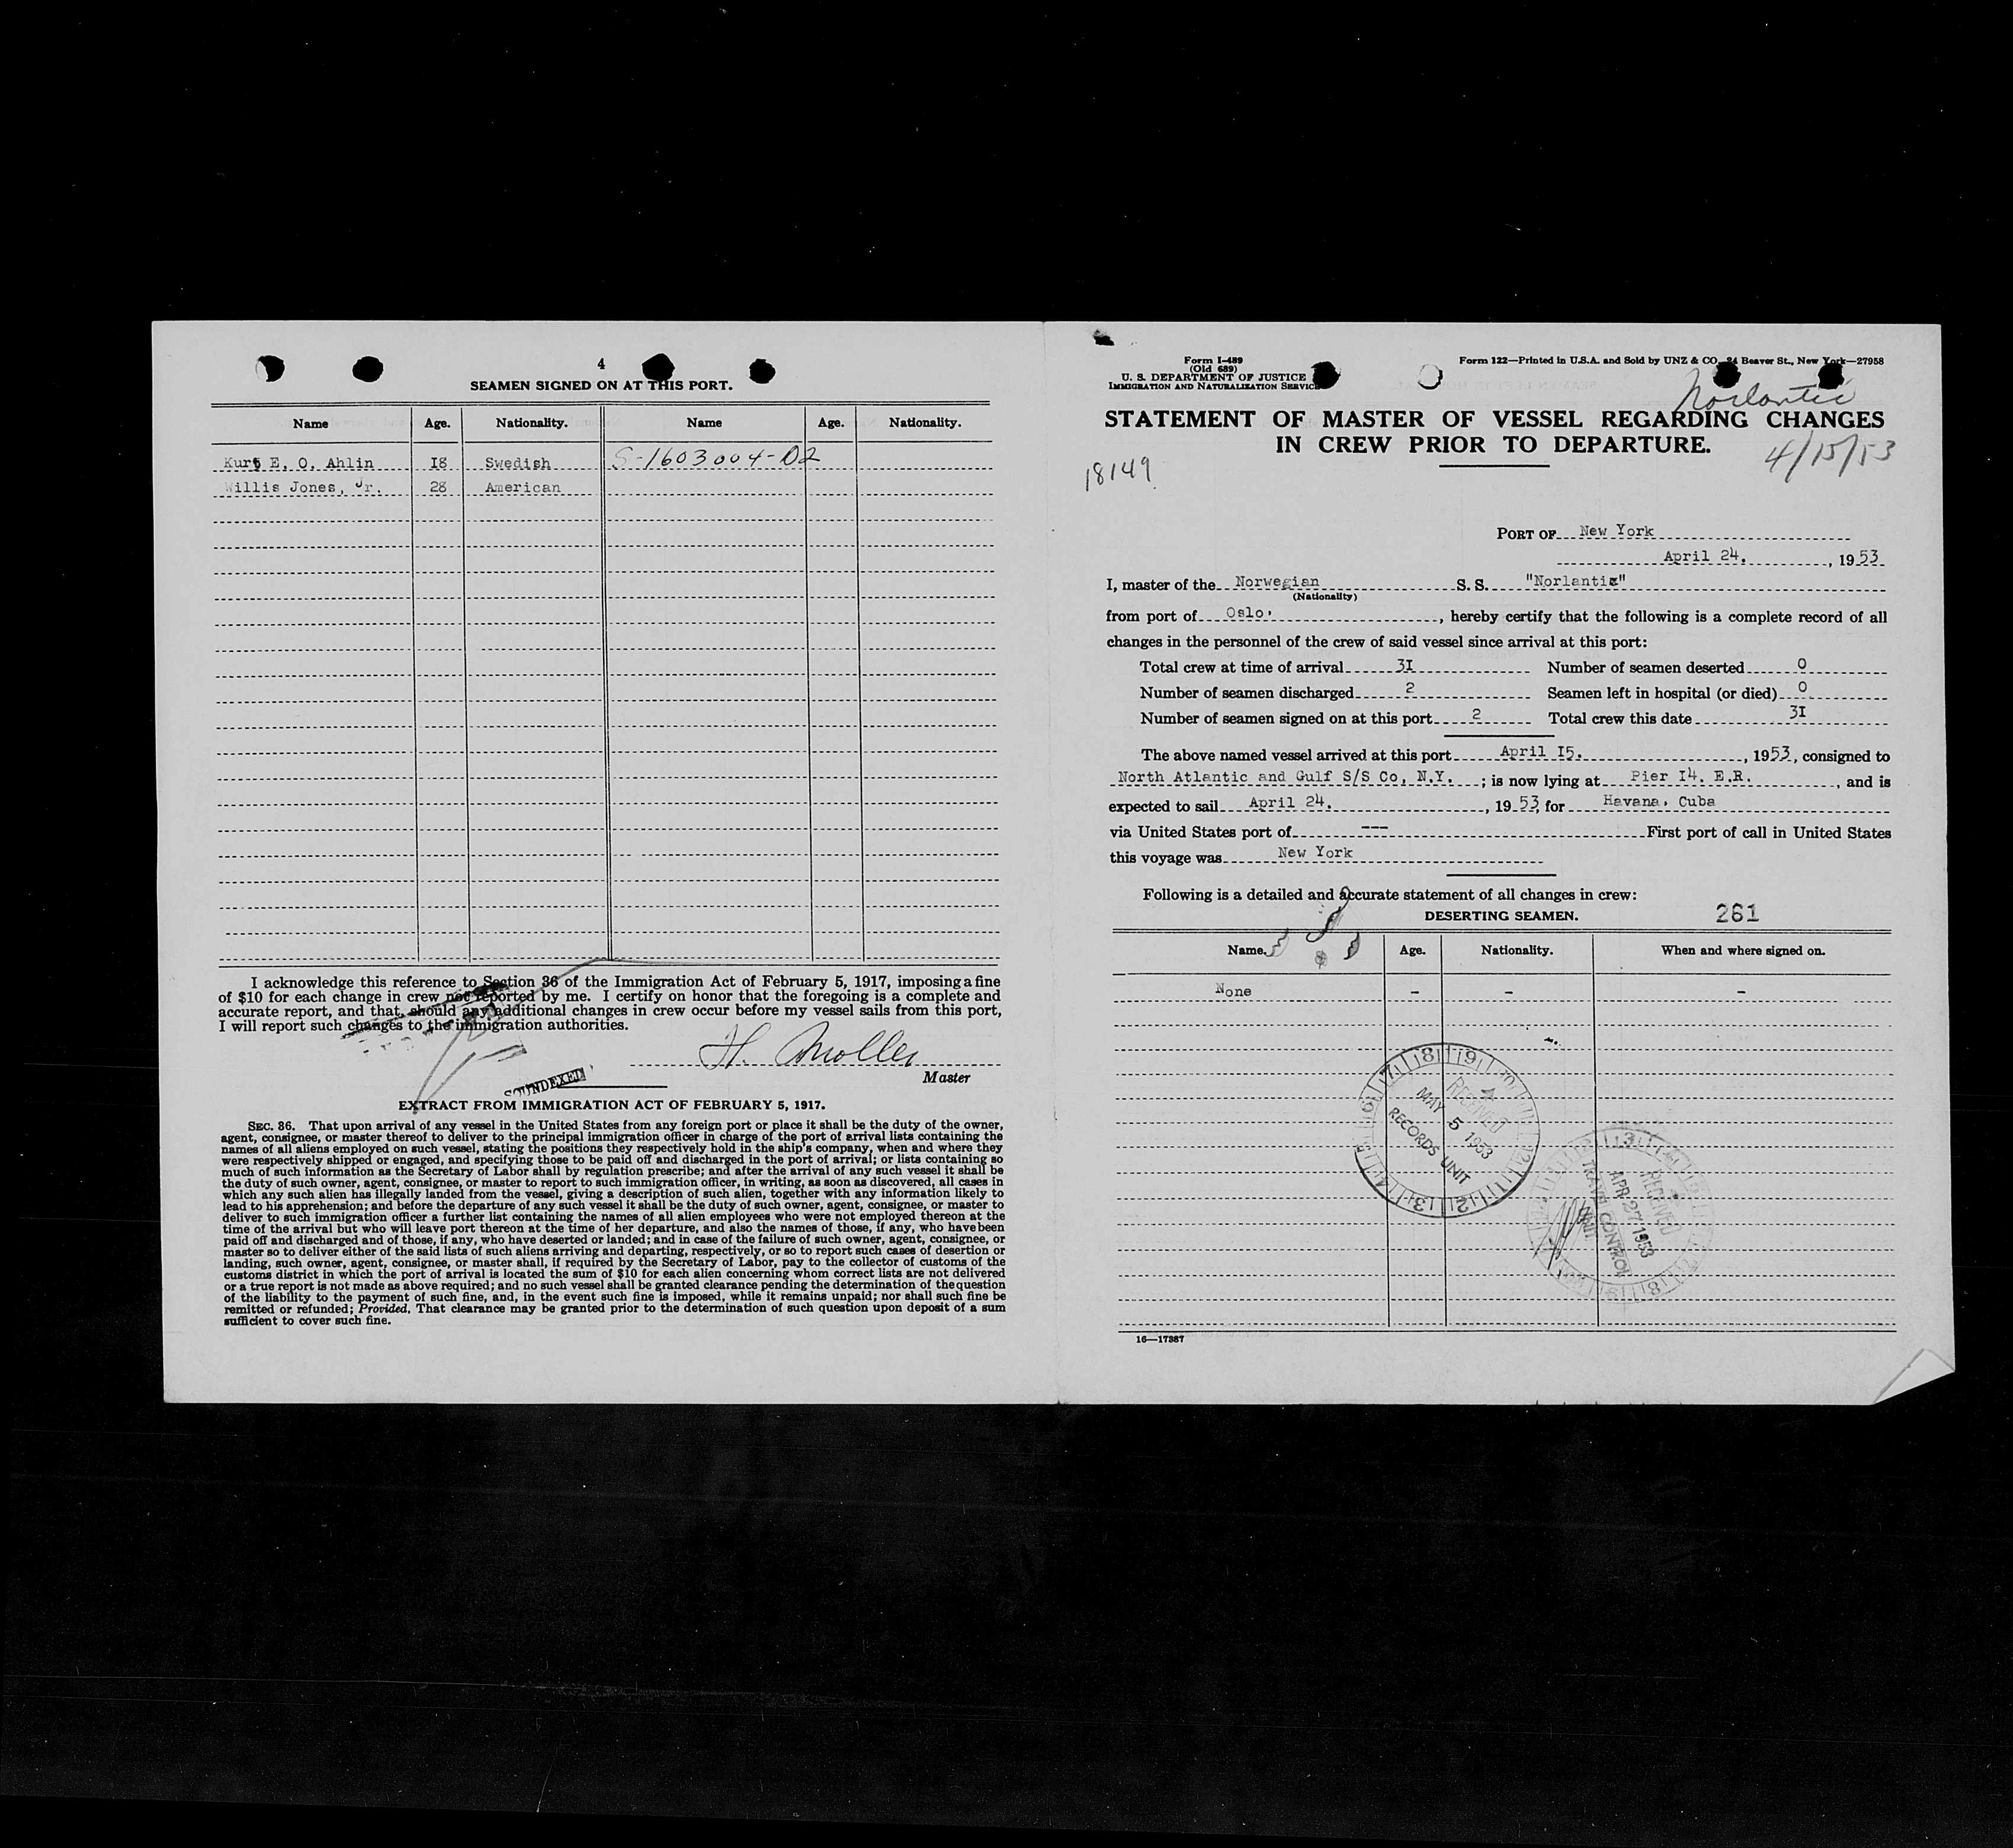 4
SEAMEN SIGNED ON AT THIS PORT.
Name Age. Nationality. Name Age. Nationality.
Kurt E. O. Ahlin I8 Swedish S-1603004-D2
Willis Jones, Jr. 28 American
I acknowledge this reference to Section 36 of the Immigration Act of February 5, 1917, imposing a fine
of $10 for each change in crew not reported by me. I certify on honor that the foregoing is a complete and
accurate report, and that, should any additional changes in crew occur before my vessel sails from this port,
I will report such changes to the immigration authorities.
H. Moller
Master
SOUNDEXED
EXTRACT FROM IMMIGRATION ACT OF FEBRUARY 5, 1917.
SEC. 36. That upon arrival of any vessel in the United States from any foreign port or place it shall be the duty of the owner,
agent, consignee, or master thereof to deliver to the principal immigration officer in charge of the port of arrival lists containing the
names of all aliens employed on such vessel, stating the positions they respectively hold in the ship's company, when and where they
were respectively shipped or engaged, and specifying those to be paid off and discharged in the port of arrival; or lists containing so
much of such information as the Secretary of Labor shall by regulation prescribe; and after the arrival of any such vessel it shall be
the duty of such owner, agent, consignee, or master to report to such immigration officer, in writing, as soon as discovered, all cases in
which any such alien has illegally landed from the vessel, giving a description of such alien, together with any information likely to
lead to his apprehension; and before the departure of any such vessel it shall be the duty of such owner, agent, consignee, or master to
deliver to such immigration officer a further list containing the names of all alien employees who were not employed thereon at the
time of the arrival but who will leave port thereon at the time of her departure, and also the names of those, if any, who have been
paid off and discharged and of those, if any, who have deserted or landed; and in case of the failure of such owner, agent, consignee, or
master so to deliver either of the said lists of such aliens arriving and departing, respectively, or so to report such cases of desertion or
landing, such owner, agent, consignee, or master shall, if required by the Secretary of Labor, pay to the collector of customs of the
customs district in which the port of arrival is located the sum of $10 for each alien concerning whom correct lists are not delivered
or a true report is not made as above required; and no such vessel shall be granted clearance pending the determination of the question
of the liability to the payment of such fine, and, in the event such fine is imposed, while it remains unpaid; nor shall such fine be
remitted or refunded; Provided, That clearance may be granted prior to the determination of such question upon deposit of a sum
sufficient to cover such fine.
Form I-489
(Old 689)
U. S. DEPARTMENT OF JUSTICE
IMMIGRATION AND NATURALIZATION SERVICE
Form 122—Printed in U.S.A. and Sold by UNZ & CO., 24 Beaver St., New York—27958
Norlantic
STATEMENT OF MASTER OF VESSEL REGARDING CHANGES
IN CREW PRIOR TO DEPARTURE.
4/15/53
18149
PORT OF New York
April 24. , 1953
I, master of the Norwegian S. S. "Norlantic"
(Nationality)
from port of Oslo. , hereby certify that the following is a complete record of all
changes in the personnel of the crew of said vessel since arrival at this port:
Total crew at time of arrival 3I Number of seamen deserted 0
Number of seamen discharged 2 Seamen left in hospital (or died) 0
Number of seamen signed on at this port 2 Total crew this date 3I
The above named vessel arrived at this port April I5. , 1953, consigned to
North Atlantic and Gulf S/S Co, N.Y. ; is now lying at Pier I4. E.R. , and is
expected to sail April 24. , 1953, for Havana, Cuba
via United States port of --- First port of call in United States
this voyage was New York
Following is a detailed and accurate statement of all changes in crew:
DESERTING SEAMEN. 261
Name. Age. Nationality. When and where signed on.
None - - -
RECEIVED
MAY 5 1953
RECORDS UNIT
RECEIVED
APR 27 1953
CONTROL
UNIT
16—17387